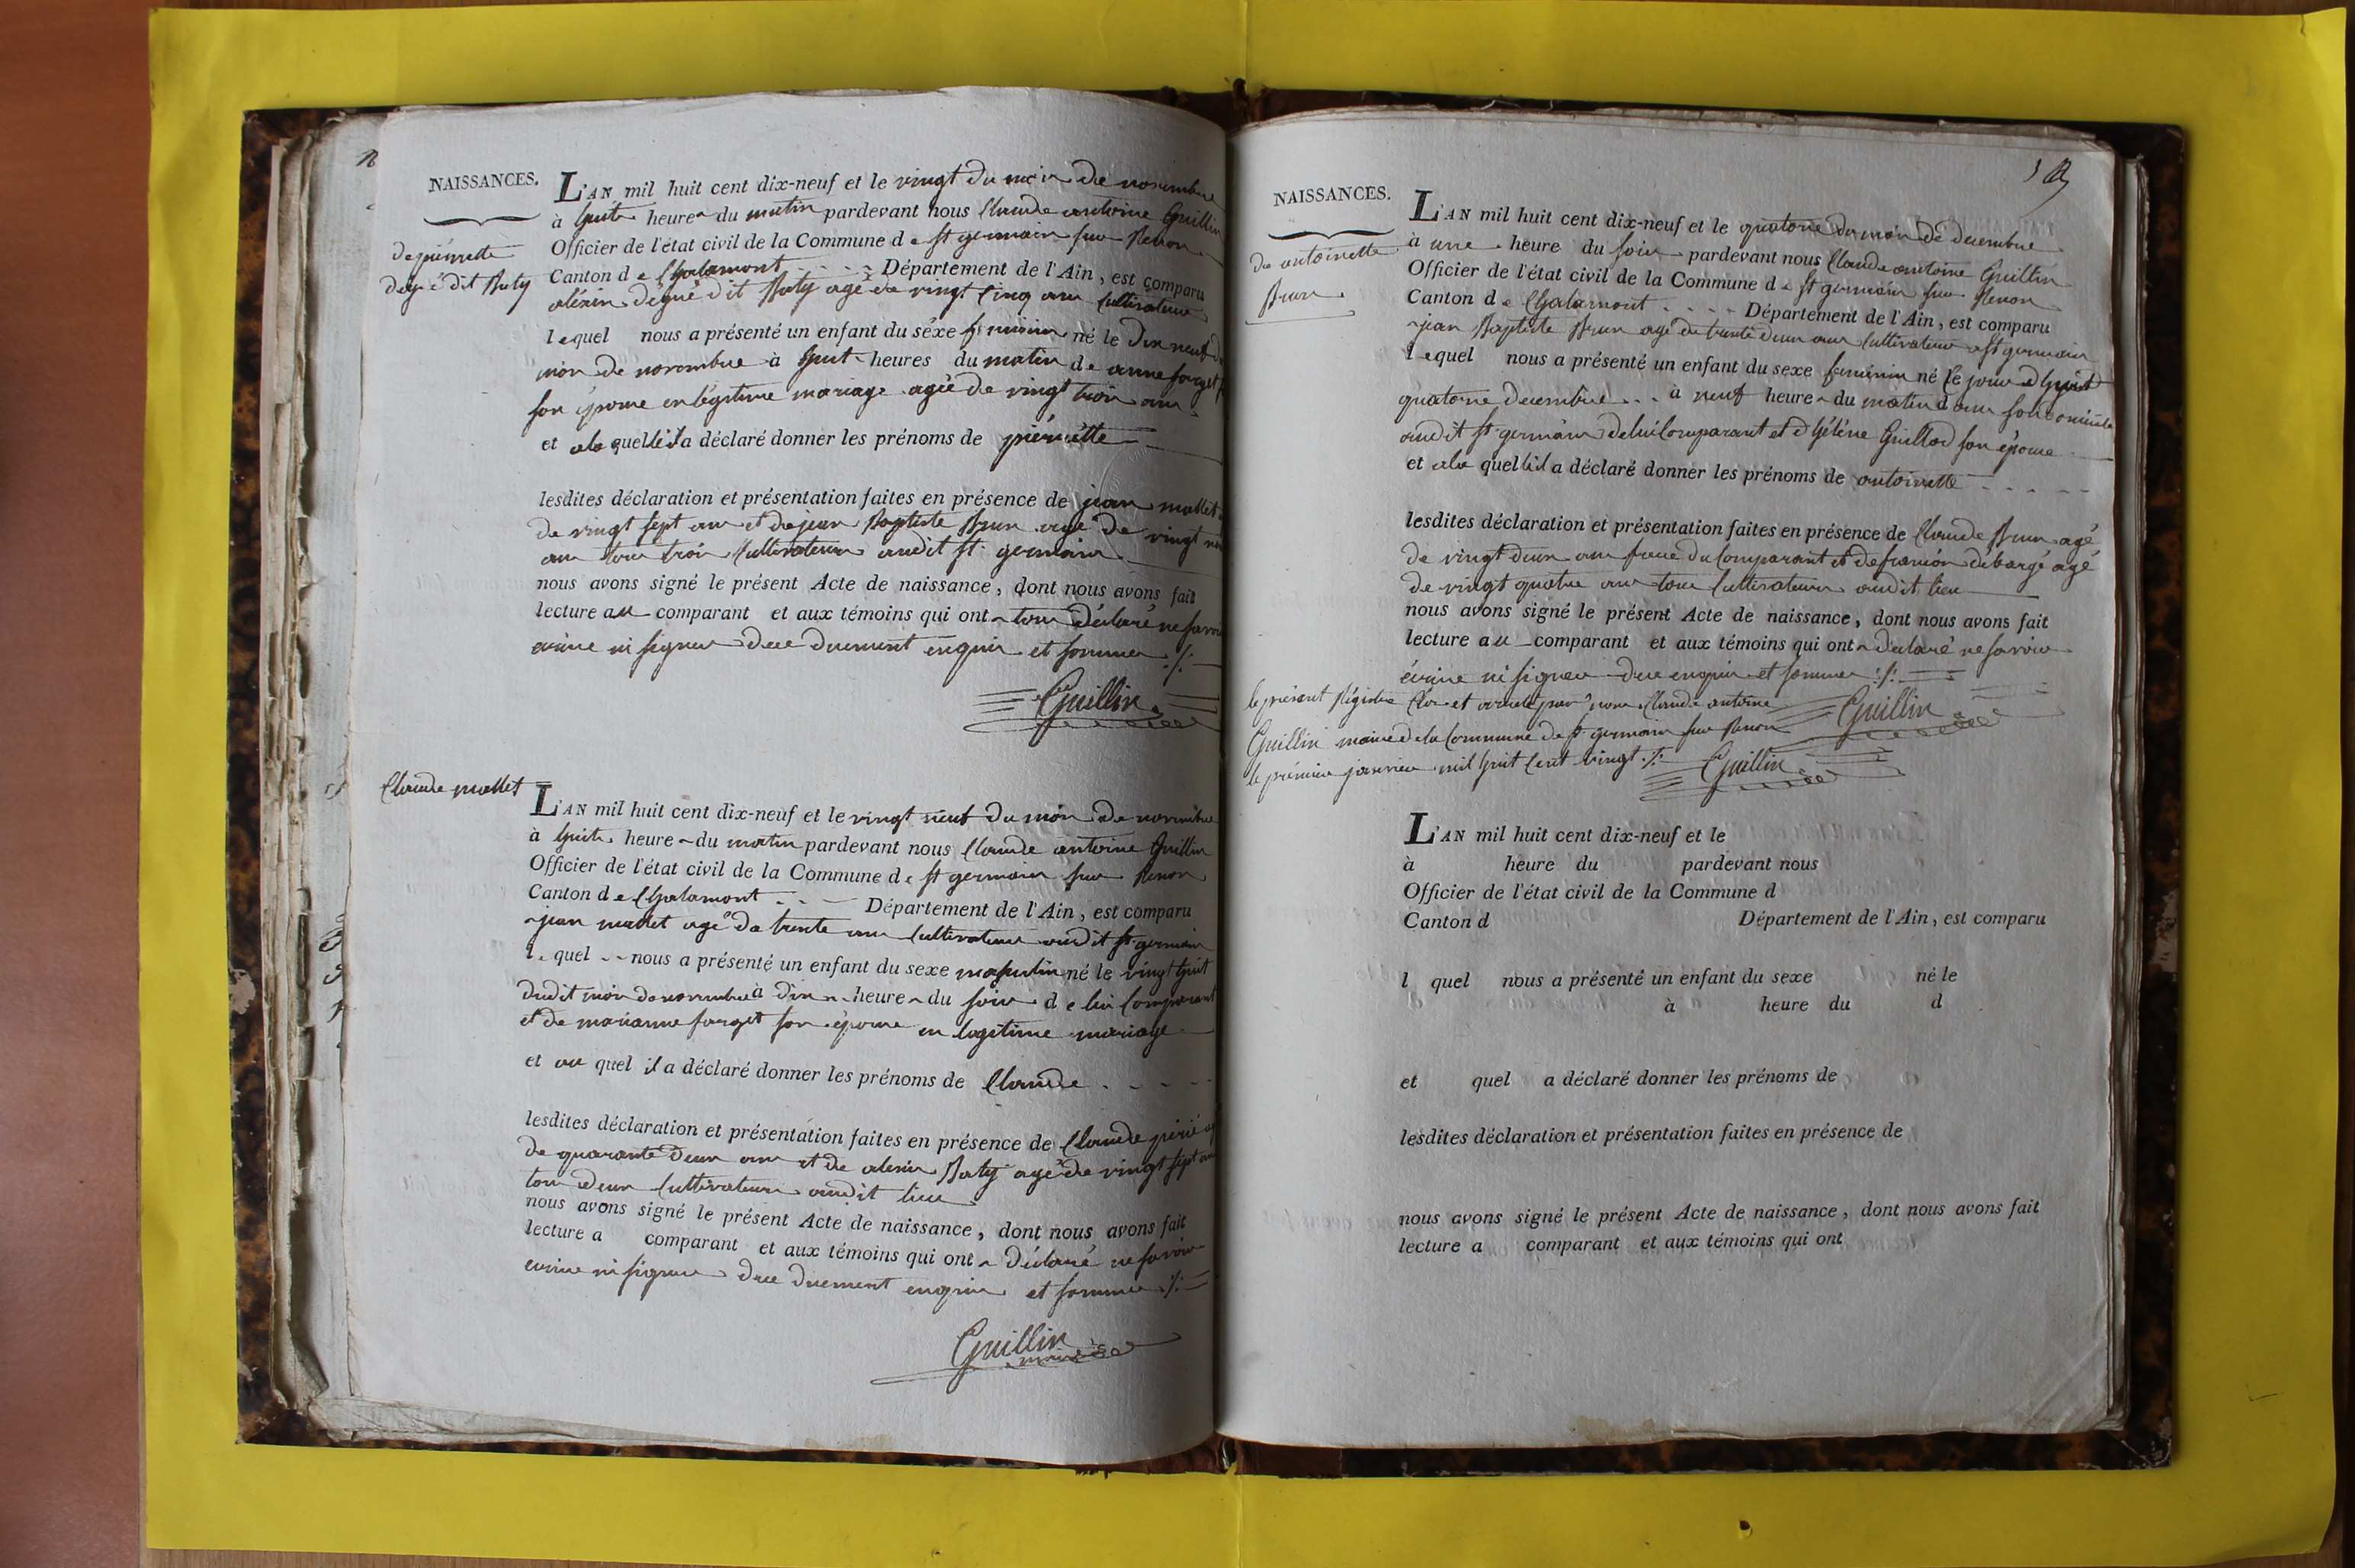 NAISSANCES.
de pierrette
degué dit Baty
L'AN mil huit cent dix-neuf et le vingt du mois de novembre
à huit heures du matin pardevant nous Claude antoine Guillin
Officier de l'état civil de la Commune de st germain sur Renon
Canton de Chalamont Département de l'Ain, est comparu
aléxis degué dit Baty agé de vingt cinq ans cultivateur
lequel nous a présenté un enfant du séxe feminin né le dix neuf du
mois de novembre à huit heures du matin de anne forget
son épouse en légitime mariage agée de vingt trois ans
et a la quelle il a déclaré donner les prénoms de pierrette
lesdites déclaration et présentation faites en présence de jean mallet
de vingt sept ans et de jean Baptiste Brun agé de vingt
ans tous trois cultivateurs audit st germain
nous avons signé le présent Acte de naissance, dont nous avons fait
lecture au comparant et aux témoins qui ont tous déclaré ne savoir
écrire ni signer de ce duement enquis et sommés ./.
Guillin
Claude mallet
L'AN mil huit cent dix-neuf et le vingt neuf du mois de novembre
à huit heures du matin pardevant nous Claude antoine Guillin
Officier de l'état civil de la Commune de st germain sur Renon
Canton de Chalamont Département de l'Ain, est comparu
jean mallet agé de trente ans cultivateur audit st germain
lequel nous a présenté un enfant du sexe masculin né le vingt huit
dudit mois de novembre à dix heures du soir de lui comparant
et de marianne forget son épouse en legitime mariage
et au quel il a déclaré donner les prénoms de Claude
lesdites déclaration et présentation faites en présence de Claude
de quarante deux ans et de alexis Baty agé de vingt sept ans
tous deux cultivateurs audit lieu
nous avons signé le présent Acte de naissance, dont nous avons fait
lecture a comparant et aux témoins qui ont déclaré ne savoir
ecrire ni signer de ce duement enquis et sommés ./.
Guillin
maire
NAISSANCES.
de antoinette
Brun
L'AN mil huit cent dix-neuf et le quatorze du mois de decembre
à une heure du soir pardevant nous Claude antoine Guillin
Officier de l'état civil de la Commune de st germain sur Renon
Canton de Chalamont Département de l'Ain, est comparu
jean Baptiste Brun agé de trente deux ans cultivateur a st germain
lequel nous a présenté un enfant du sexe feminin né le jour d'hui
quatorze decembre à neuf heures du matin dans son domicile
audit st germain de lui comparant et d'héléne Guillod son épouse
et a la quelle il a déclaré donner les prénoms de antoinette
lesdites déclaration et présentation faites en présence de Claude Brun agé
de vingt deux ans frere du comparant et de françois débargé agé
de vingt quatre ans tous cultivateurs audit lieu
nous avons signé le présent Acte de naissance, dont nous avons fait
lecture au comparant et aux témoins qui ont déclaré ne savoir
écrire ni signer de ce enquis et sommés ./.
Guillin
le présent Régistre clos et arreté par nous Claude antoine
Guillin maire de la Commune de st germain sur Renon
le prémier janvier mil huit cent vingt ./.
Guillin
L'AN mil huit cent dix-neuf et le
à heure du pardevant nous
Officier de l'état civil de la Commune d
Canton d Département de l'Ain, est comparu
l quel nous a présenté un enfant du sexe né le
à heure du d
et quel a déclaré donner les prénoms de
lesdites déclaration et présentation faites en présence de
nous avons signé le présent Acte de naissance, dont nous avons fait
lecture a comparant et aux témoins qui ont